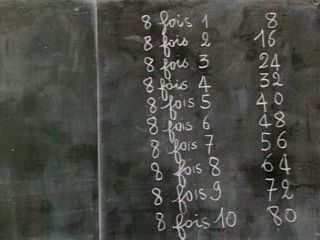 8 fois 1 8
8 fois 2 16
8 fois 3 24
8 fois 4 32
8 fois 5 40
8 fois 6 48
8 fois 7 56
8 fois 8 64
8 fois 9 72
8 fois 10 80